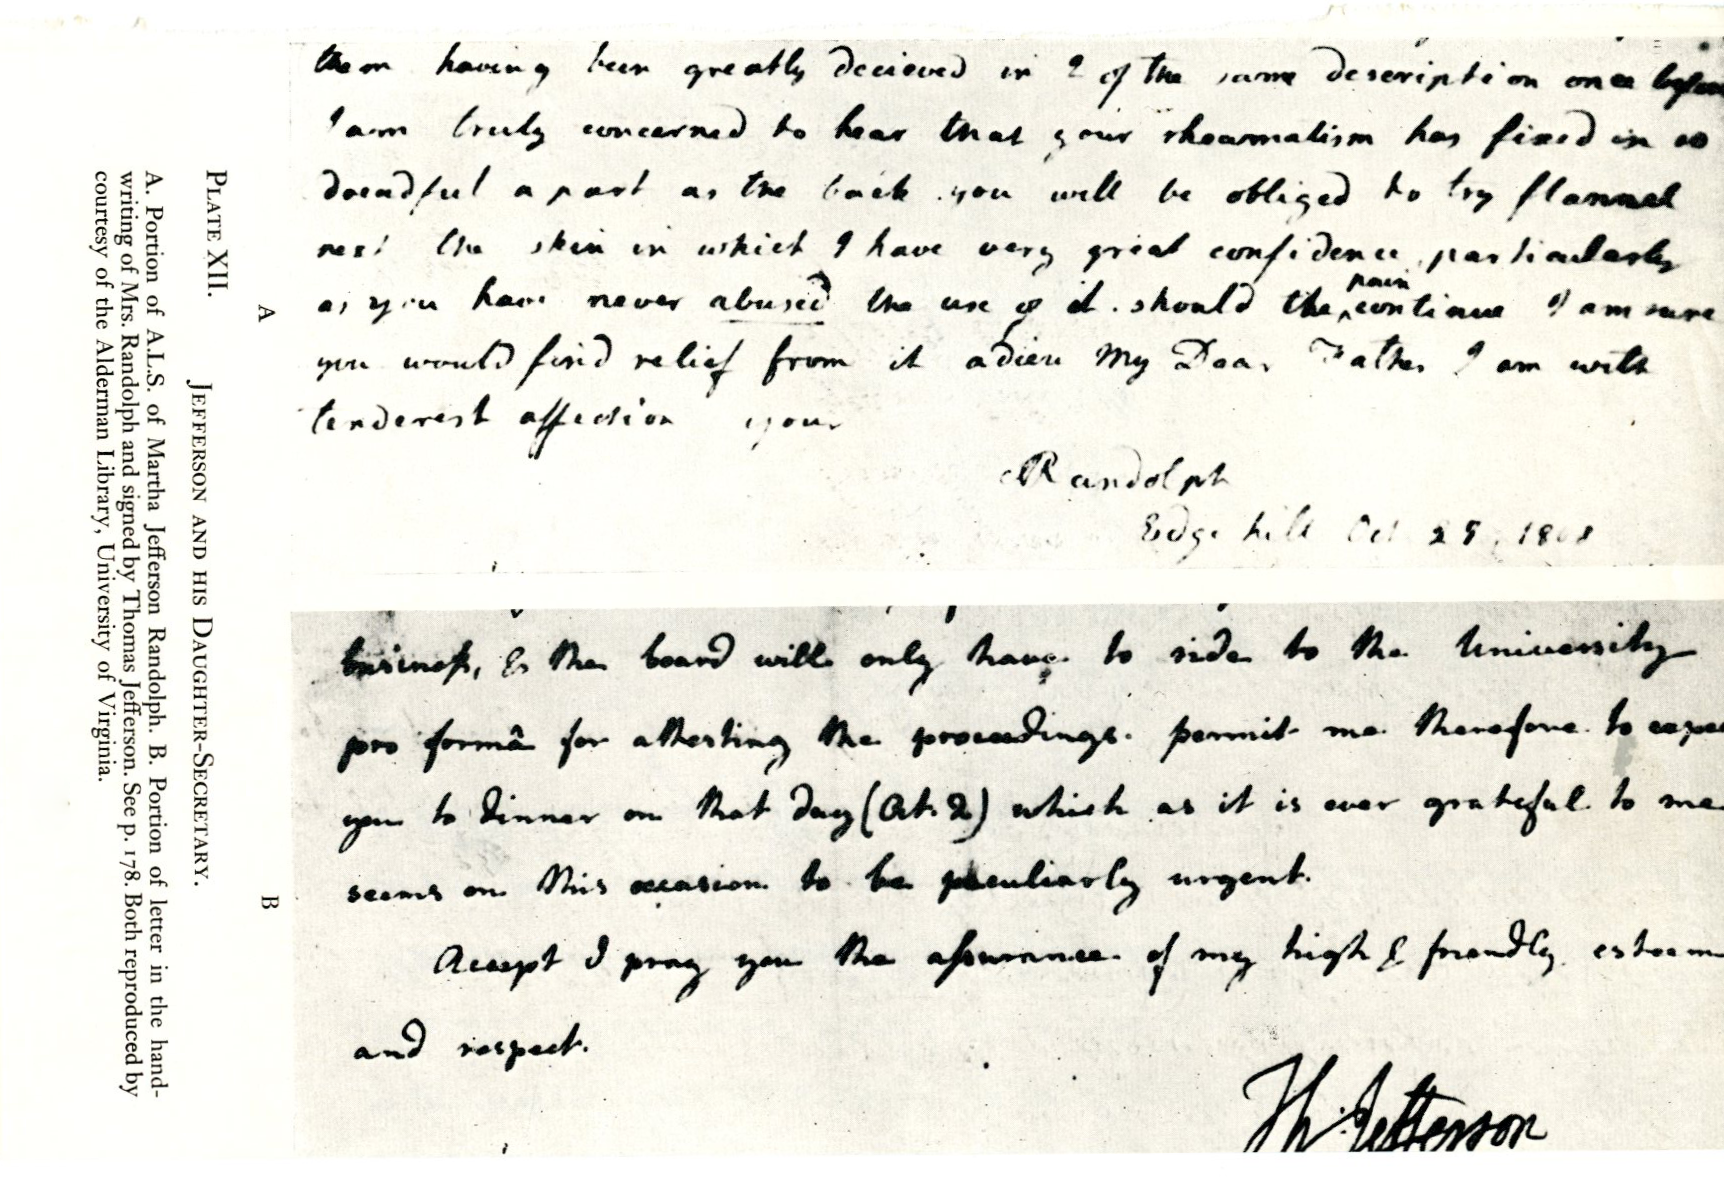 them having been greatly decieved in 2 of the same description once before
I am truly concerned to hear that your rheumatism has fixed in so
dreadful a part as the back. you will be obliged to try flannel
next the skin in which I have very great confidence, particularly
as you have never abused the use of it. should the pain continue I am sure
you would find relief from it adieu My Dear Father I am with
tenderest affection your
MRandolph
Edgehill Oct 1808
A
business, & the board will only have to ride to the University
pro formâ for attesting the proceedings. permit me therefore to expect
you to dinner on that day (Oct. 2) which as it is ever grateful to me
seems on this occasion to be peculiarly urgent.
Accept I pray you the assurance of my high & friendly esteem
and respect.
Th: Jefferson
B
PLATE XII. JEFFERSON AND HIS DAUGHTER-SECRETARY.
A. Portion of A.L.S. of Martha Jefferson Randolph. B. Portion of letter in the hand-
writing of Mrs. Randolph and signed by Thomas Jefferson. See p. 178. Both reproduced by
courtesy of the Alderman Library, University of Virginia.